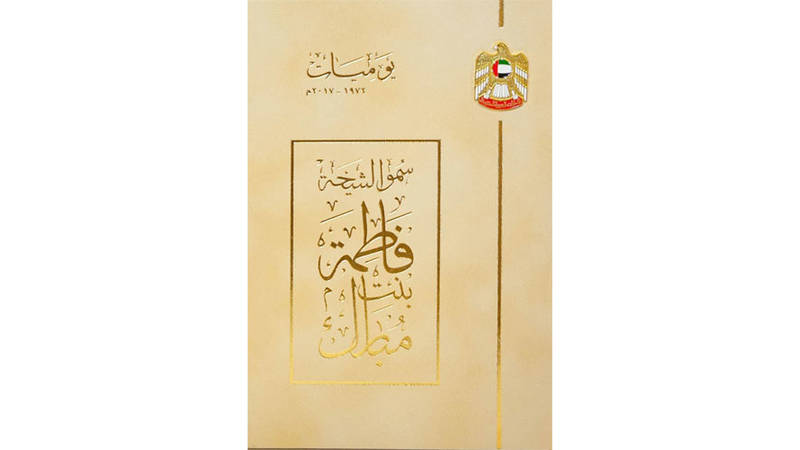 يوميات
١٩٧٢ - ٢٠١٧م
سمو الشيخة
فاطمة
بنت
مبارك